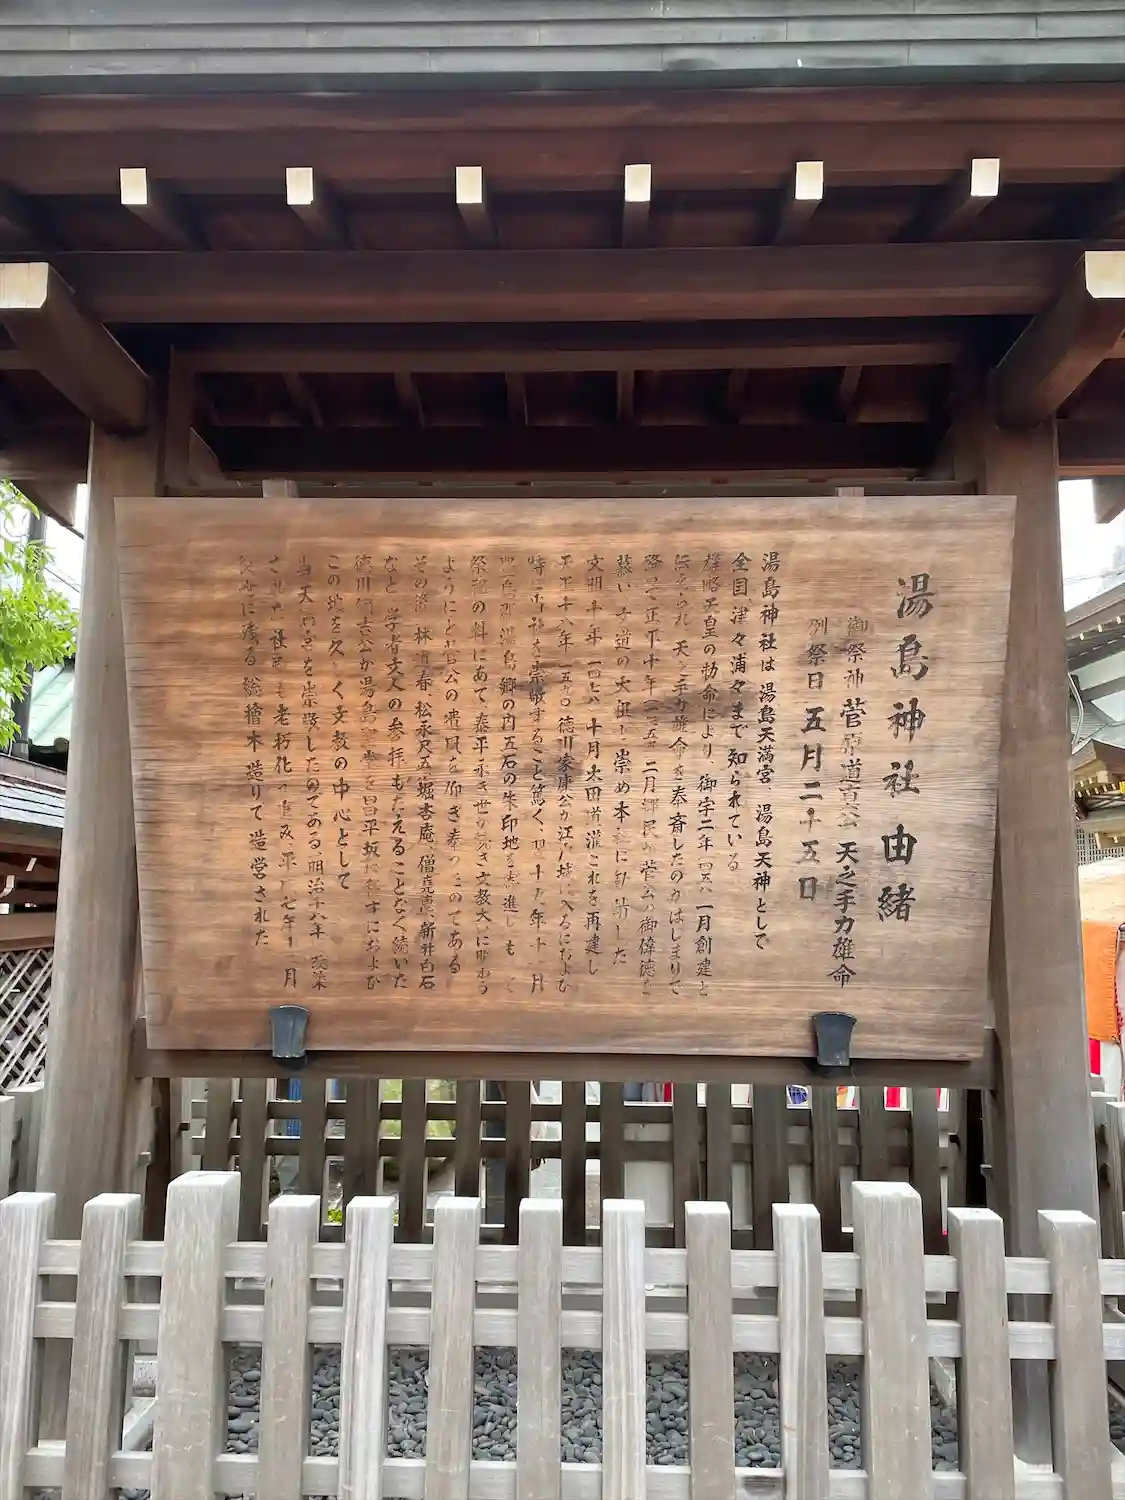 湯島神社由緒
御祭神 菅原道真公 天之手力雄命
例祭日 五月二十五日
湯島神社は湯島天満宮、湯島天神として
全国津々浦々まで知られている
雄略天皇の勅命により、御宇二年(四五八)一月創建と
伝えられ、天之手力雄命を奉斎したのがはじまりで
降って正平十年(一三五五)二月郷民が菅公の御偉徳を
慕い、文道の大祖と崇め本社に勧請した
文明十年(一四七八)十月太田道灌これを再建し
天正十八年(一五九〇)徳川家康公が江戸城に入るにおよび
特に当社を崇敬すること篤く、翌十九年十一月
豊島郡湯島郷の内五石の朱印地を寄進しもって
祭祀の料にあて、泰平永き世が続き文教大いに賑わう
ようにと菅公の遺風を仰ぎ奉ったのである
その後、林道春、松永尺五、堀杏庵、僧堯恵、新井白石
など、学者文人の参拝もたえることなく続いた
徳川綱吉公が湯島聖堂を昌平坂に移すにおよび
この地を久しく文教の中心として
当天満宮を崇敬したのである、明治十八年に改築
された社殿も老朽化が進み、平成七年十二月
後世に残る総檜木造りで造営された